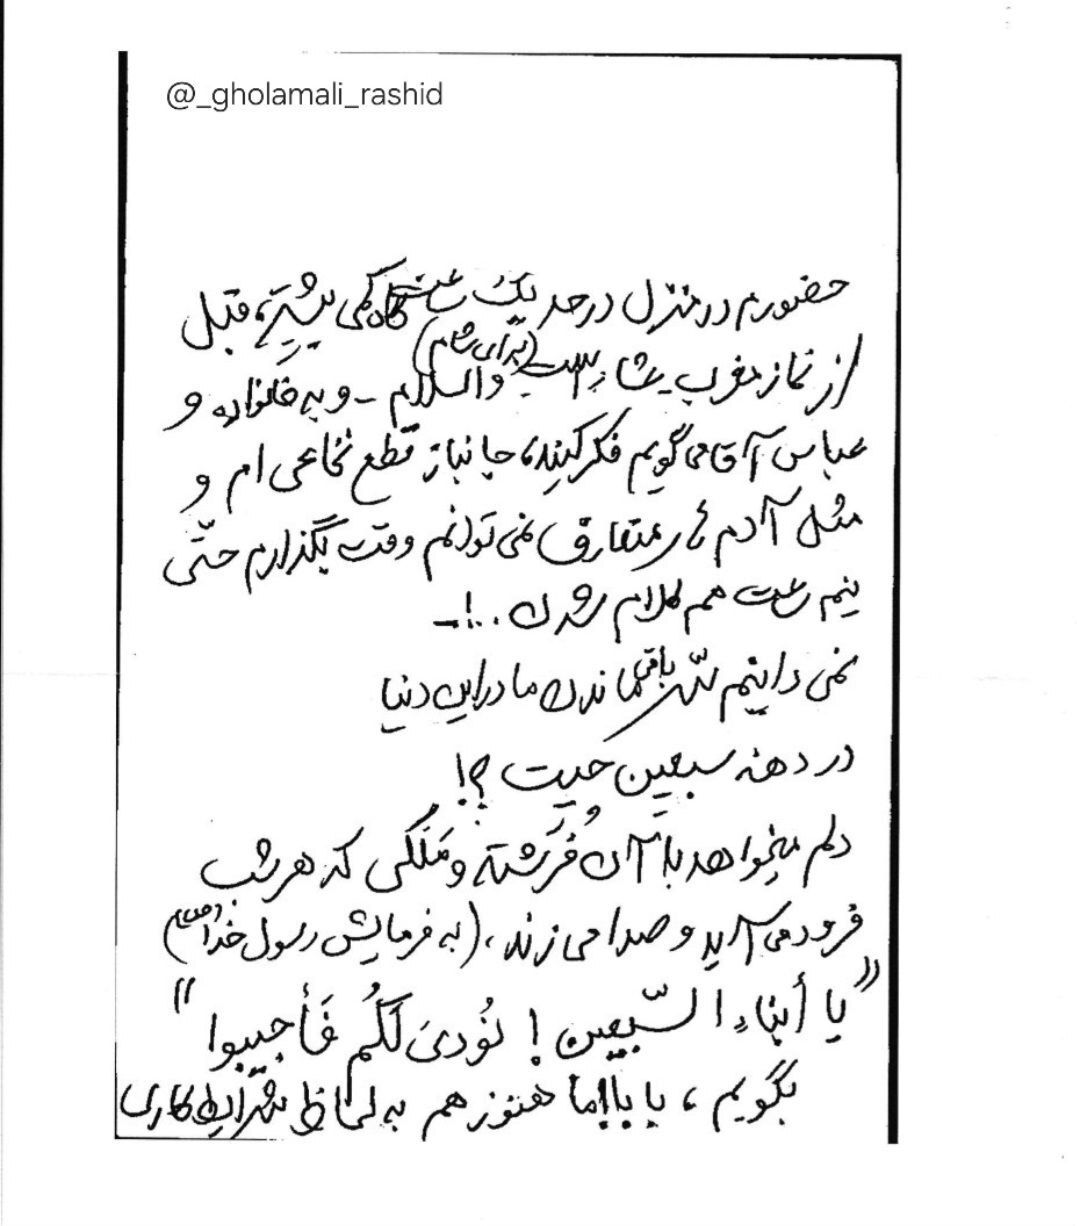 @_gholamali_rashid
حضورم در منزل در حد یک ساعت گاه کمی بیشتر، قبل
از نماز مغرب عشاء است (برای شام) والسلام - و به خانواده و
عباس آقا می گویم فکر کنید، جانباز قطع نخاعی ام و
مثل آدم های متعارف نمی توانم وقت بگذارم حتّی
نیم ساعت هم کلام شدن ..!-
نمی دانیم سّر باقیماندن ما در این دنیا
در دهه سبعین چیست ؟!
دلم میخواهد با آن فرشته و مَلَکی که هر شب
فرود می آید و صدا می زند، (به فرمایش رسول خدا (ص))
"یا أبناء السّبعین ! نُودیَ لَکُم فَأجیبوا"
بگویم ، بابا اما هنوز هم به لحاظ شرایط کاری